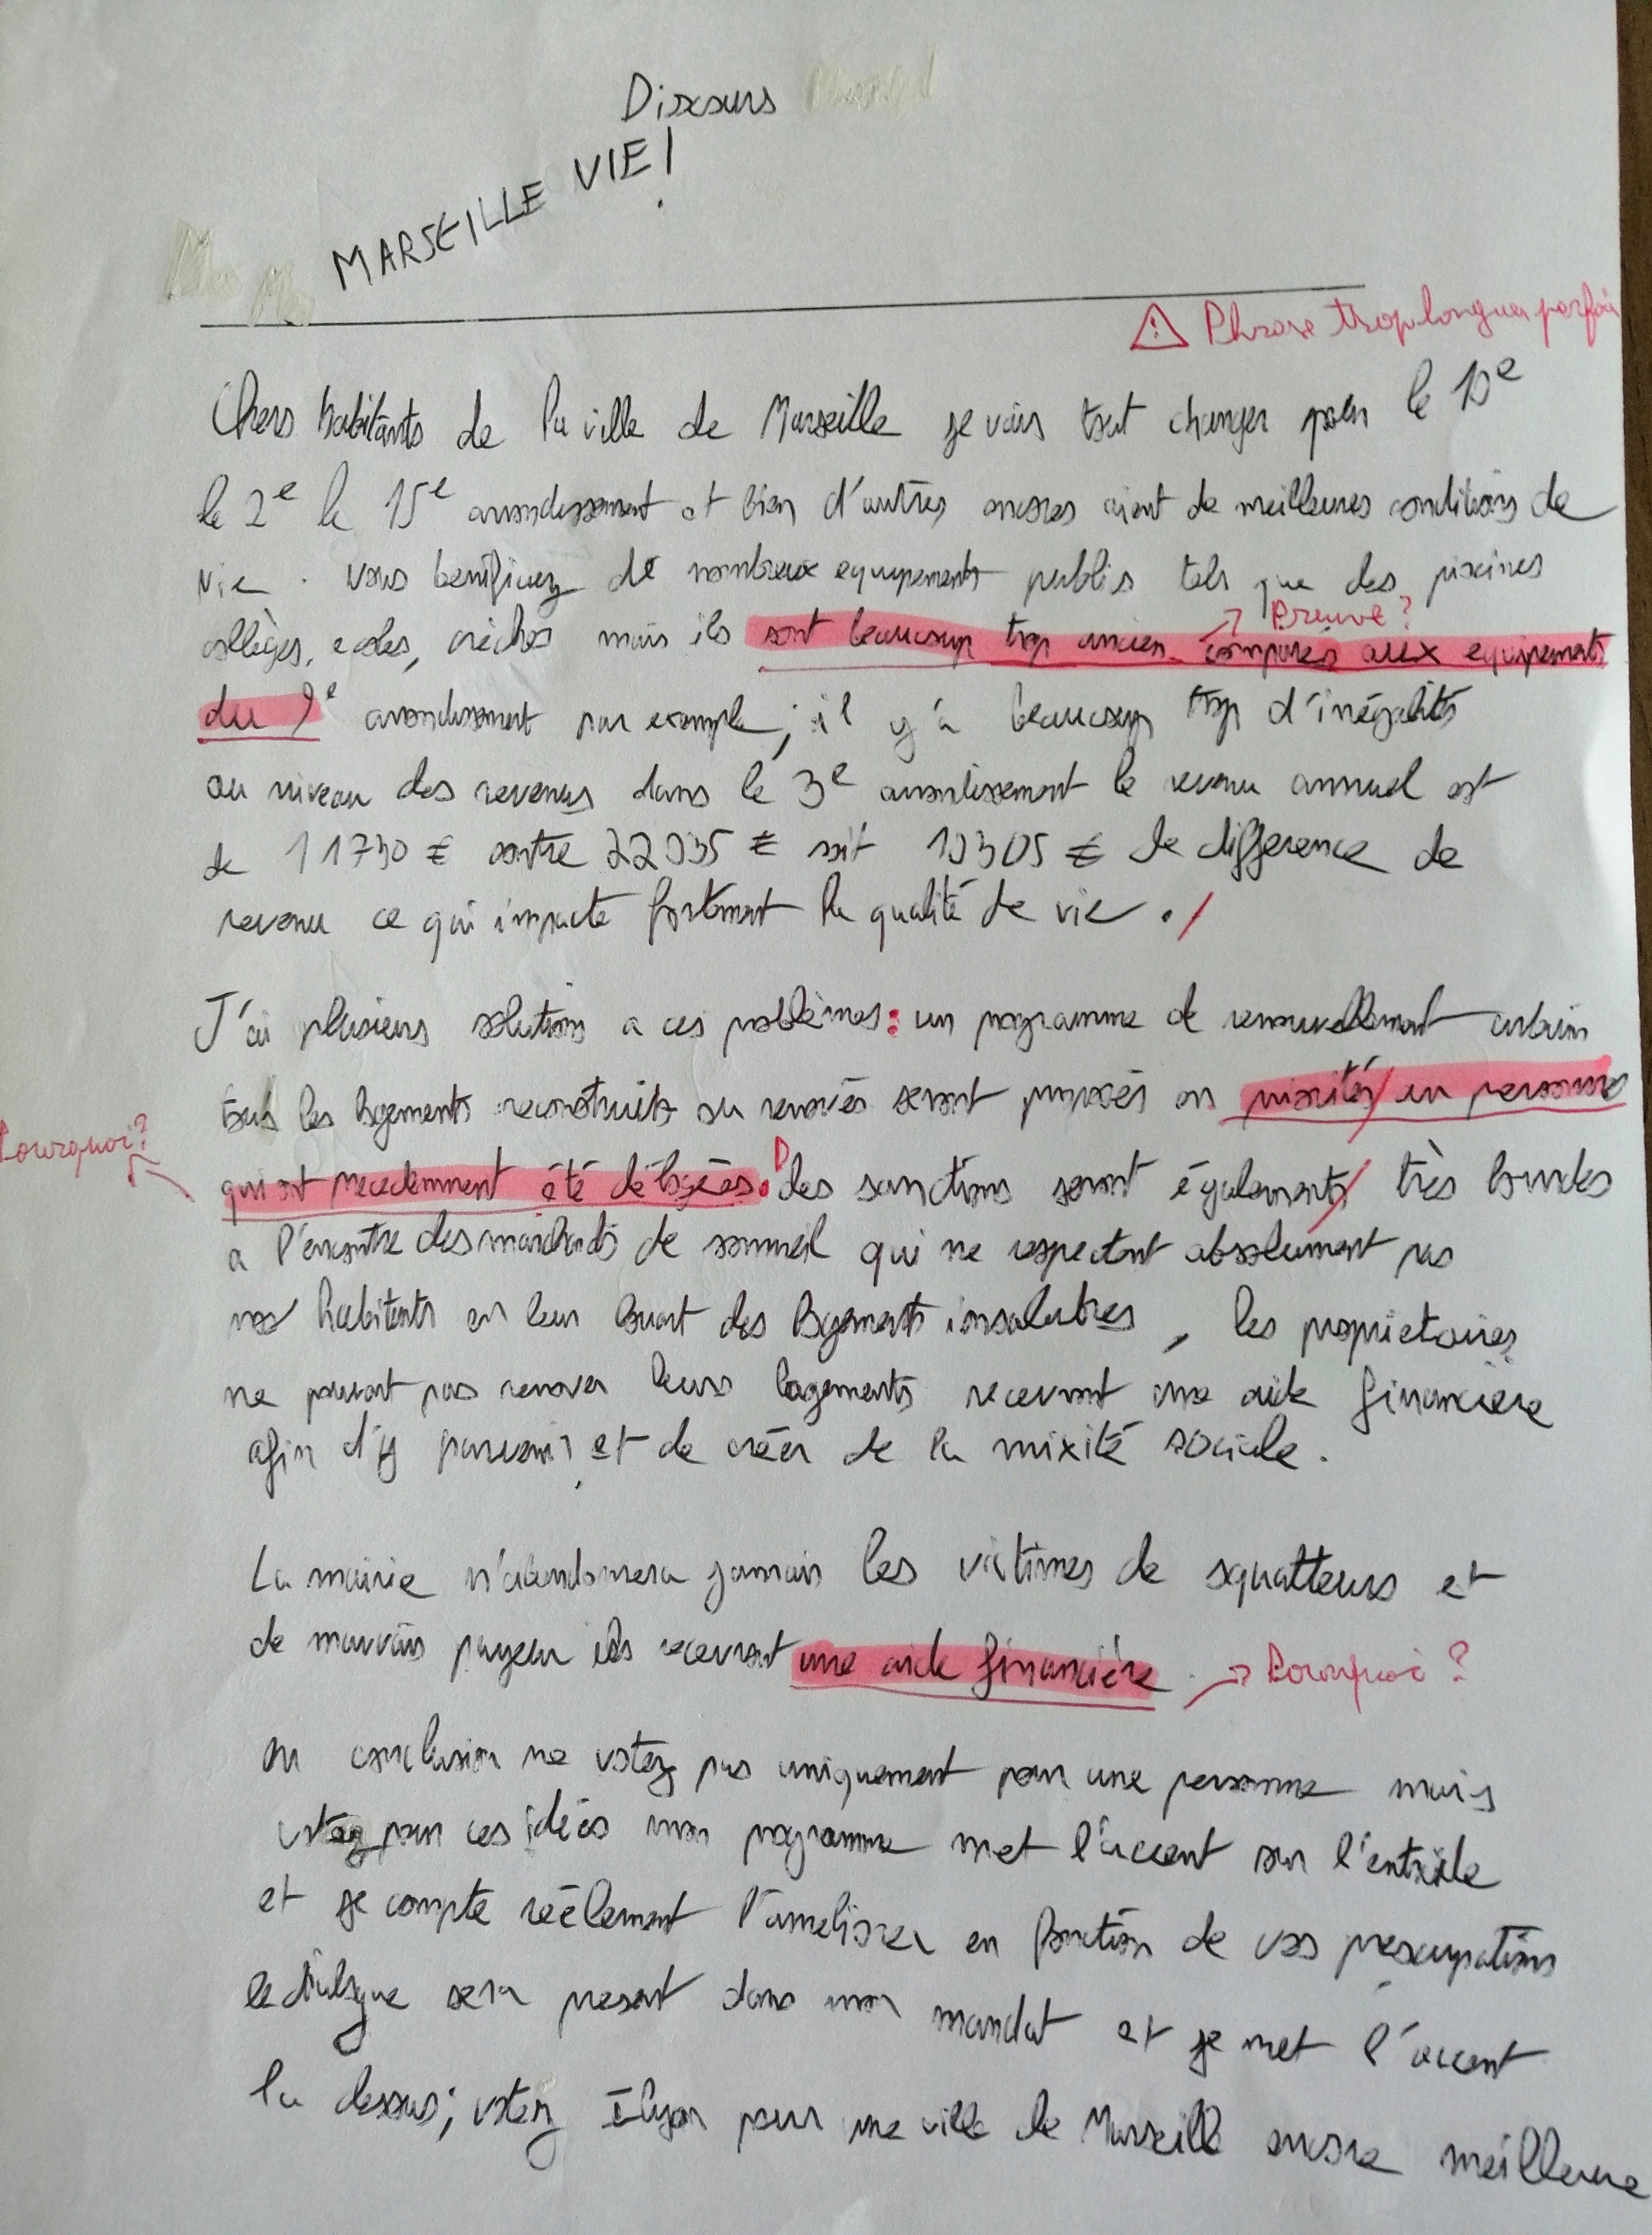 Discours
MARSEILLE VIE!
⚠ Phrase trop longues parfois
Chers habitants de la ville de Marseille je vais tout changer pour le 10e
le 2e le 15e arrondissement et bien d'autres encores aient de meilleures conditions de
vie. vous benificiez de nombreux equipements publis tels que des piscines
→ Preuve?
collèges, ecoles, crèches mais ils sont beaucoup trop ancien comparés aux equipements
du 9e arrondissement par exemple; il y'a beaucoup trop d'inégalités
au niveau des revenus dans le 3e arrondissement le revenu annuel est
de 11730 € contre 22035 € soit 10305 € de difference de
revenu ce qui impacte fortement la qualité de vie. /
J'ai plusieurs solutions a ces problèmes: un programme de renouvellement urbain
tous les logements reconstruits ou renovés seront proposés en priorités en personnes
Pourquoi?
qui ont precedemment été délogées. Des sanctions seront égalements très lourdes
a l'encontre des marchands de sommeil qui ne respectent absolument pas
nos habitants en leur louant des logements insalubres, les proprietaires
ne pouvant pas renover leurs logements recevront une aide financière
afin d'y parvenir et de créer de la mixité sociale.
La mairie n'abandonnera jamais les victimes de squatteurs et
de mauvais payeur ils recevront une aide financière → Pourquoi?
en conclusion ne votez pas uniquement pour une personne mais
votez pour ces idées mon programme met l'accent sur l'entraide
et je compte réélement l'ameliorer en fonction de vos preocupations
le dialogue sera present dans mon mandat et je met l'accent
la dessus; votez Ilyan pour une ville de Marseille encore meilleure